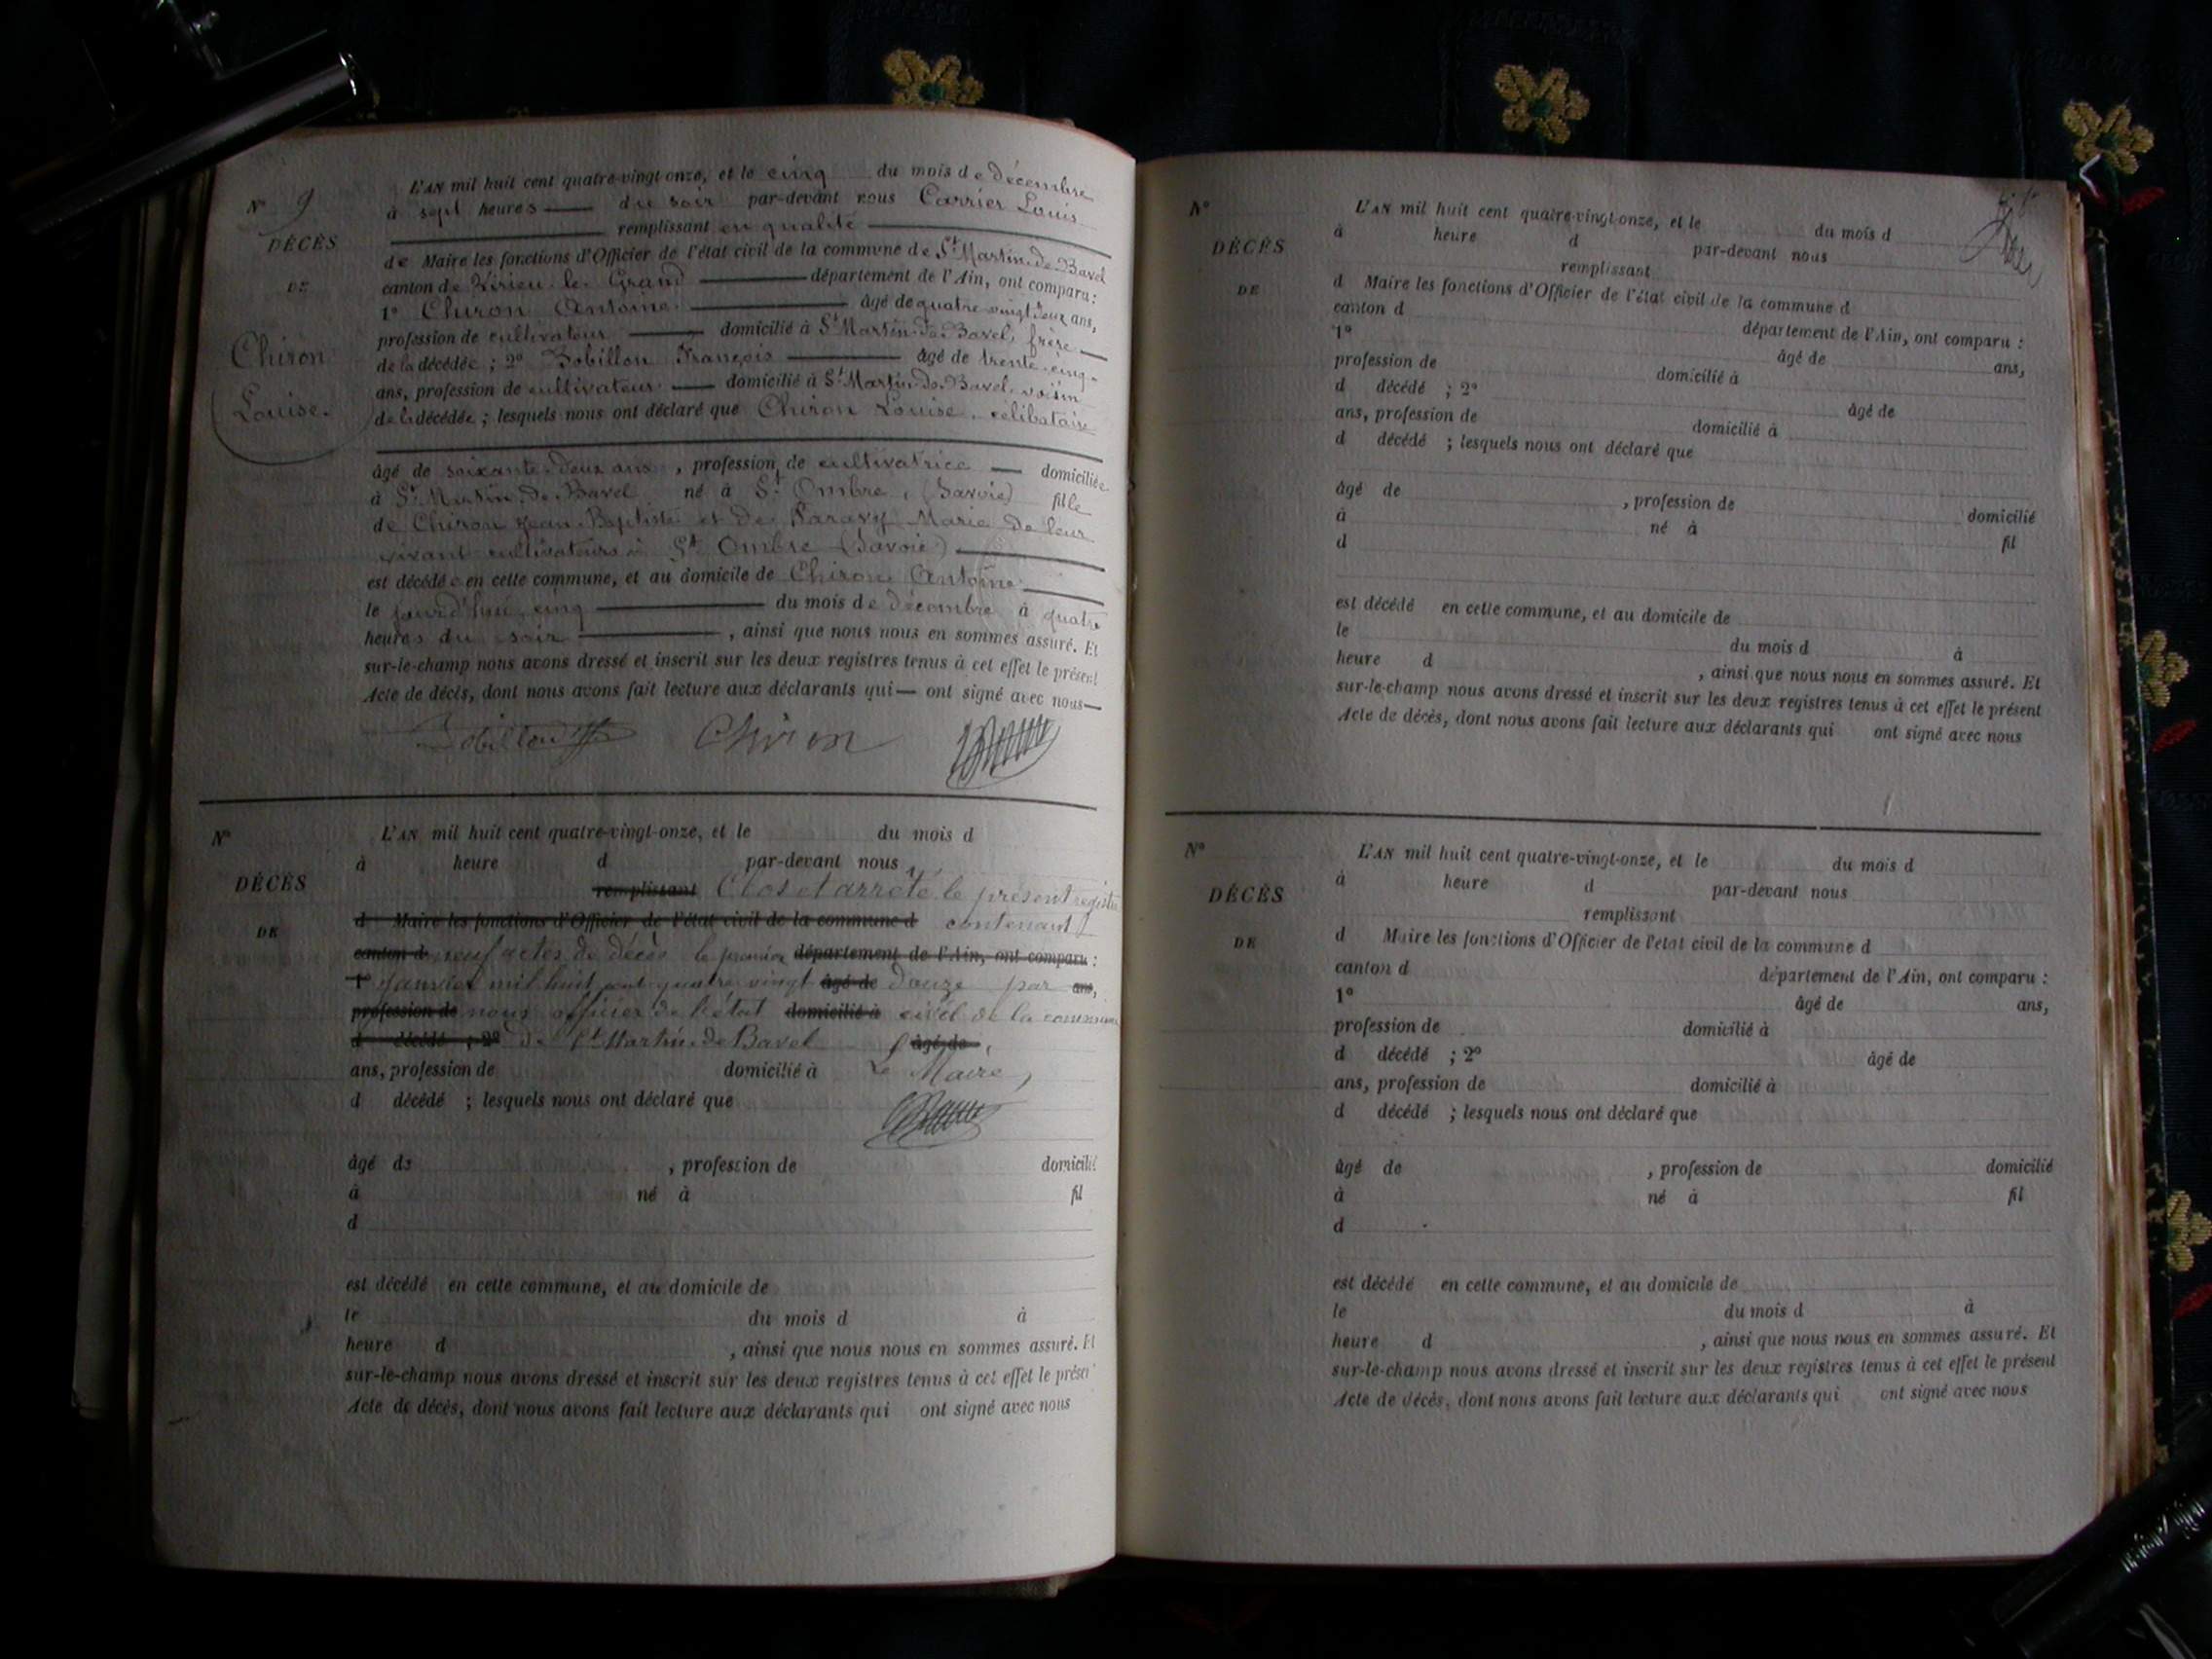 N° 9
DÉCÈS
DE
Chiron
Louise.
L'AN mil huit cent quatre-vingt-onze, et le cinq du mois de décembre
à sept heures du soir par-devant nous Carrier Louis
remplissant en qualité
de Maire les fonctions d'Officier de l'état civil de la commune de St Martin-de-Bavel
canton de Virieu-le-Grand département de l'Ain, ont comparu :
1° Chiron Antoine âgé de quatre-vingt deux ans,
profession de cultivateur domicilié à St Martin-de-Bavel, frère
de la décédée ; 2° Bobillon François âgé de trente-cinq
ans, profession de cultivateur domicilié à St Martin-de-Bavel, voisin
de la décédée ; lesquels nous ont déclaré que Chiron Louise, célibataire
âgé de soixante-deux ans, profession de cultivatrice domiciliée
à St Martin-de-Bavel né à St Ombre, (Savoie) fille
de Chiron Jean-Baptiste et de Paravy Marie de leur
vivant cultivateurs à St Ombre (Savoie)
est décédée en cette commune, et au domicile de Chiron Antoine
le jourd'hui cinq du mois de décembre à quatre
heures du soir, ainsi que nous nous en sommes assuré. Et
sur-le-champ nous avons dressé et inscrit sur les deux registres tenus à cet effet le présent
Acte de décès, dont nous avons fait lecture aux déclarants qui — ont signé avec nous—
Bobillon Chiron
N°
DÉCÈS
DE
L'AN mil huit cent quatre-vingt-onze, et le du mois d
à heure d par-devant nous
remplissant Clos et arrêté le présent registre
d Maire les fonctions d'Officier de l'état civil de la commune d contenant
canton d neuf actes de décès le premier département de l'Ain, ont comparu :
1° janvier mil huit cent quatre vingt âgé de douze par ans,
profession de nous officier de l'état domicilié à civil de la commune
d décédé ; 2° de St Martin-de-Bavel âgé de
ans, profession de domicilié à Le Maire,
d décédé ; lesquels nous ont déclaré que
âgé de , profession de domicilié
à né à fil
d
est décédé en cette commune, et au domicile de
le du mois d à
heure d , ainsi que nous nous en sommes assuré. Et
sur-le-champ nous avons dressé et inscrit sur les deux registres tenus à cet effet le présent
Acte de décès, dont nous avons fait lecture aux déclarants qui ont signé avec nous
N°
DÉCÈS
DE
L'AN mil huit cent quatre-vingt-onze, et le du mois d
à heure d par-devant nous
remplissant
d Maire les fonctions d'Officier de l'état civil de la commune d
canton d département de l'Ain, ont comparu :
1° âgé de ans,
profession de domicilié à
d décédé ; 2° âgé de
ans, profession de domicilié à
d décédé ; lesquels nous ont déclaré que
âgé de , profession de domicilié
à né à fil
d
est décédé en cette commune, et au domicile de
le du mois d à
heure d , ainsi que nous nous en sommes assuré. Et
sur-le-champ nous avons dressé et inscrit sur les deux registres tenus à cet effet le présent
Acte de décès, dont nous avons fait lecture aux déclarants qui ont signé avec nous
N°
DÉCÈS
DE
L'AN mil huit cent quatre-vingt-onze, et le du mois d
à heure d par-devant nous
remplissant
d Maire les fonctions d'Officier de l'état civil de la commune d
canton d département de l'Ain, ont comparu :
1° âgé de ans,
profession de domicilié à
d décédé ; 2° âgé de
ans, profession de domicilié à
d décédé ; lesquels nous ont déclaré que
âgé de , profession de domicilié
à né à fil
d
est décédé en cette commune, et au domicile de
le du mois d à
heure d , ainsi que nous nous en sommes assuré. Et
sur-le-champ nous avons dressé et inscrit sur les deux registres tenus à cet effet le présent
Acte de décès, dont nous avons fait lecture aux déclarants qui ont signé avec nous